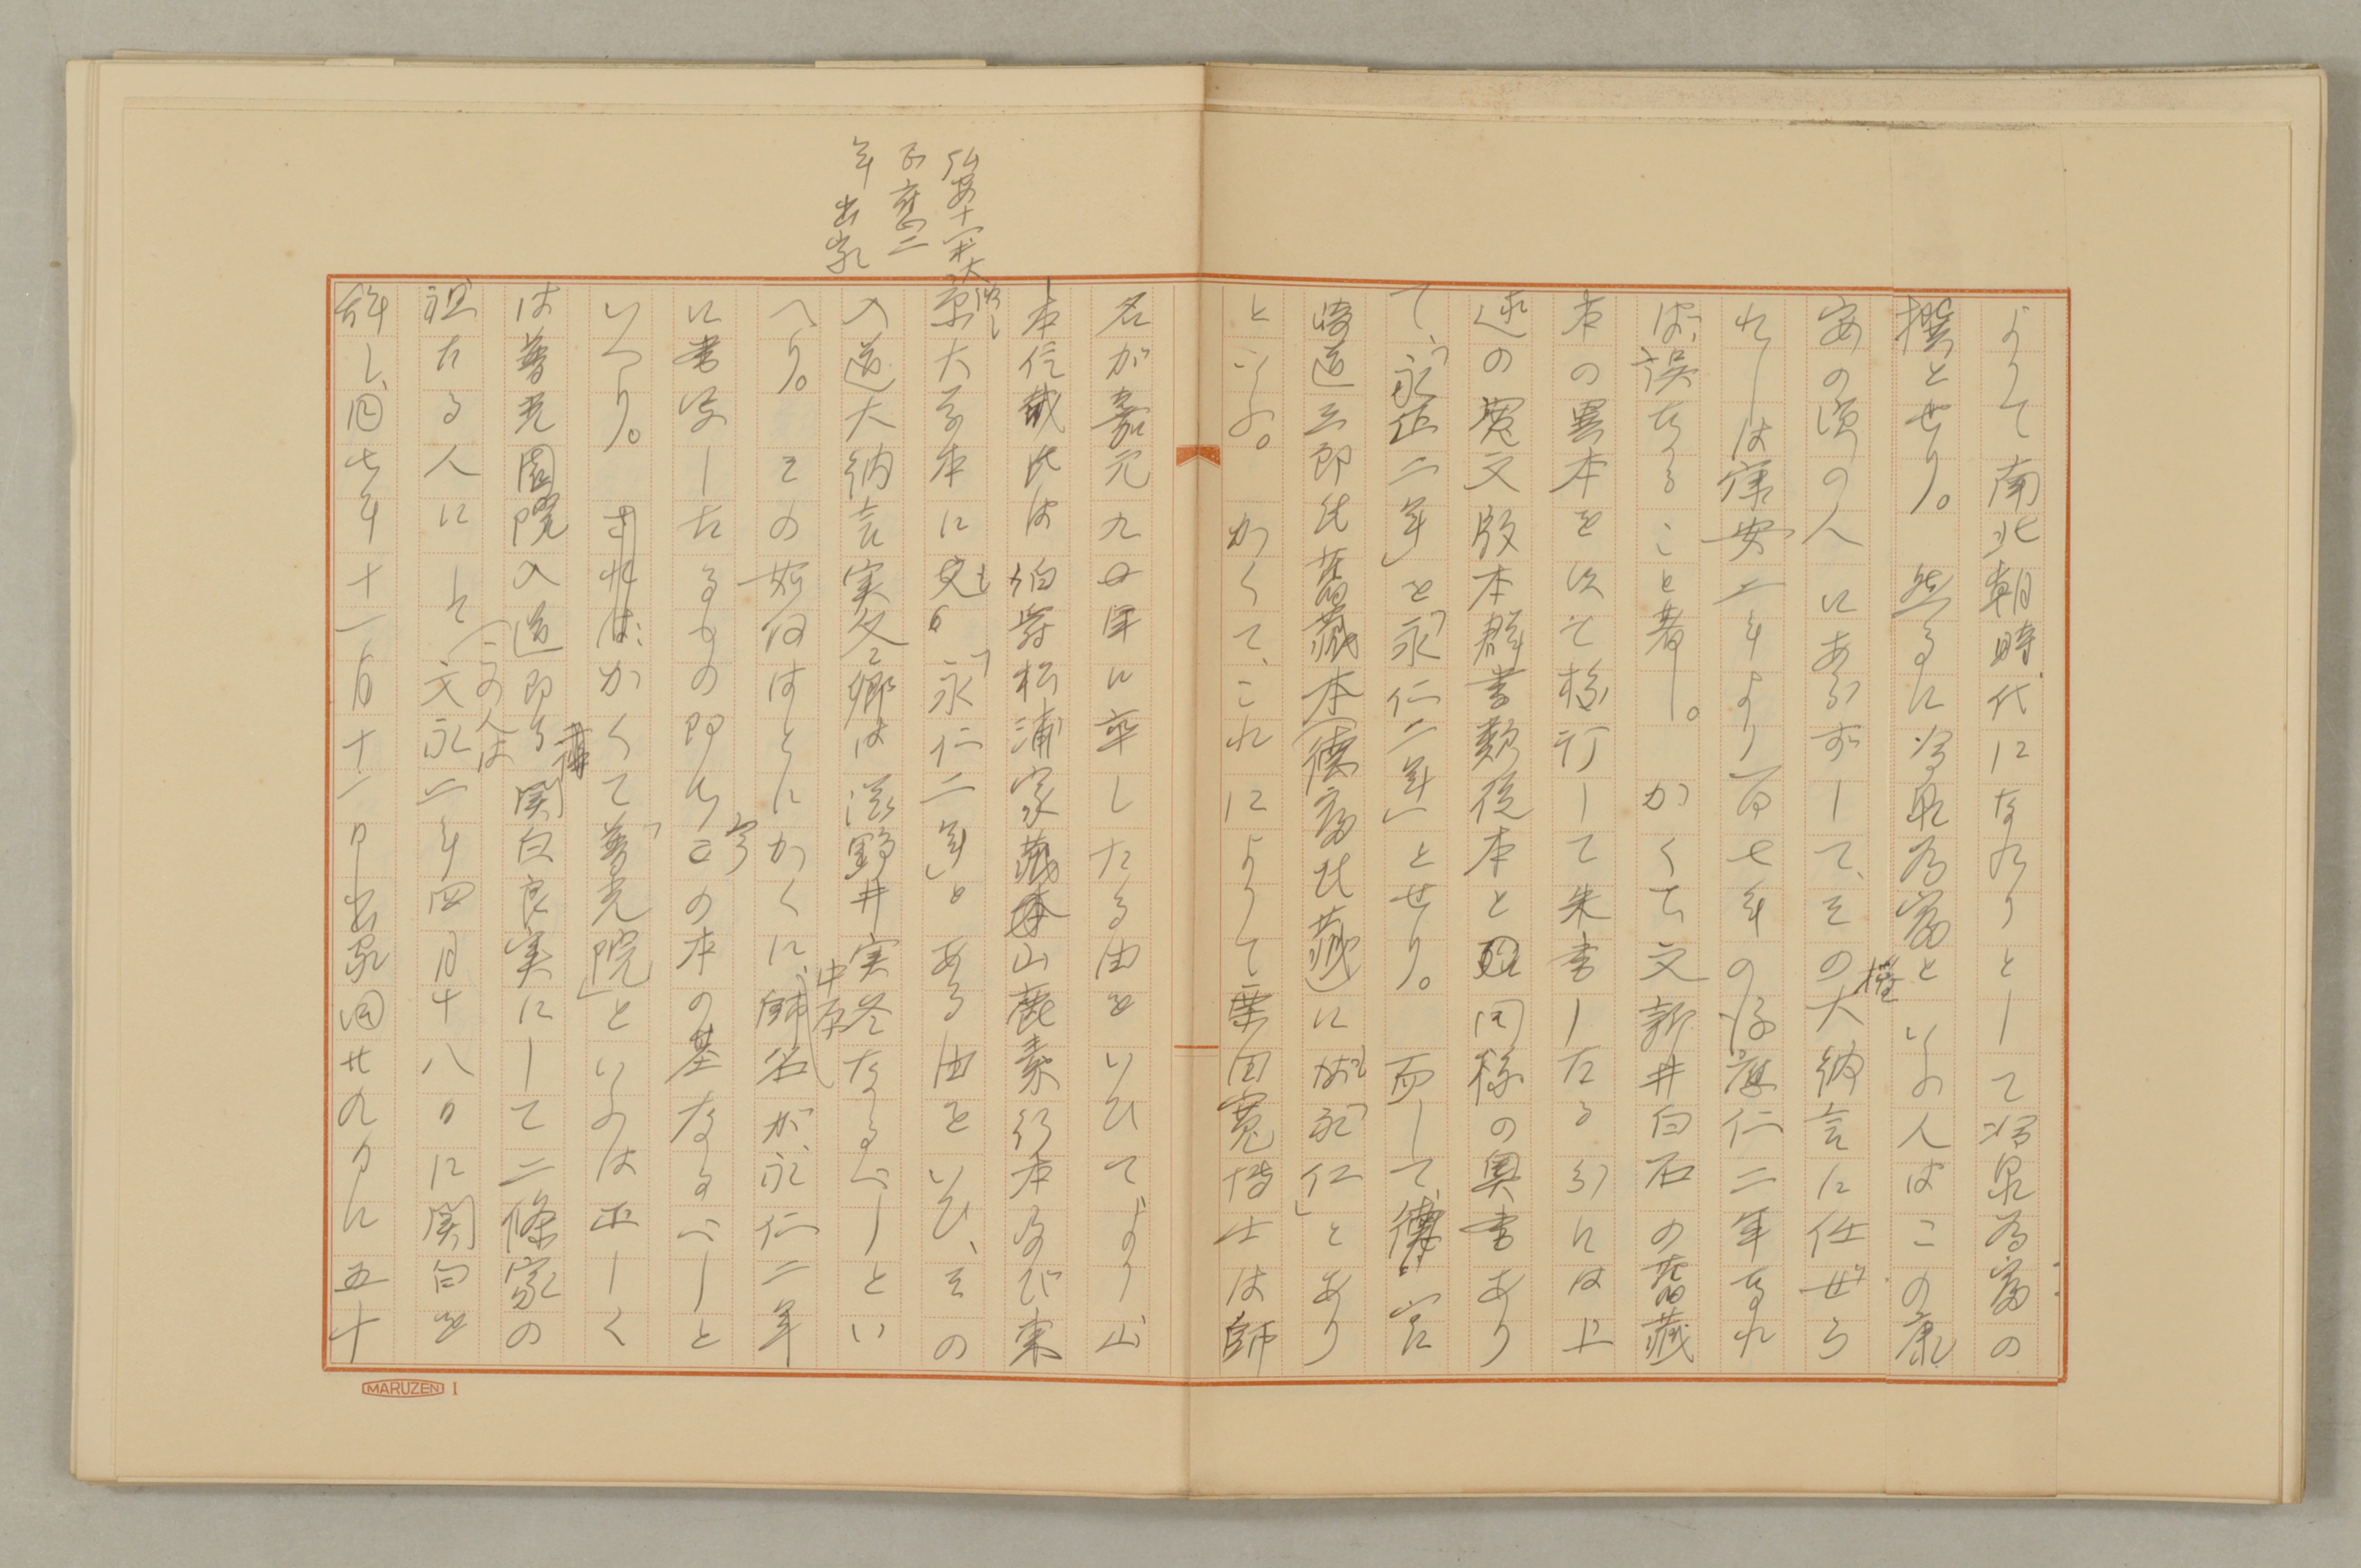 よりて南北朝時代になれりとして冷泉為富の
撰とせり。然るに冷泉為富といふ人はこの康
安の頃の人にあらずして、その権大納言に任ぜら
れしは康安二年より百七年の後應仁二年なれ
ば、誤なること著し。かくて文新井白石の舊藏
本の異本を以て校訂して朱書したる分には上
述の寛文版本群書類従本と同様の奥書あり
て、「永正二年」を「永仁二年」とせり。而して、宮
崎道三郎氏舊藏本(德富氏藏)にも「永仁」とあり
といふ。かくて、これによりて栗田寛博士は師
名が嘉元九年に卒したる由をいひてより山
本信哉氏は伯爵松浦家藏山鹿素行本及び東
京大学本にも「永仁二年」とある由をいひ、その
入道大納言実冬卿は滋野井実冬なるべしとい
へり。その如何はとにかくに、中原師名が、永仁二年
に書写したるもの即ちこの本の基なるべしと
いへり。かくて「普光院」といふは正しく
は普光園院入道即ち関白良実にして二條家の
祖たる人にして(この人は文永二年四月十八日に関白を
辞し、同七年十一月十一日出家同廿九日に五十
弘安十一年大
正應二
年出家
MARUZEN I